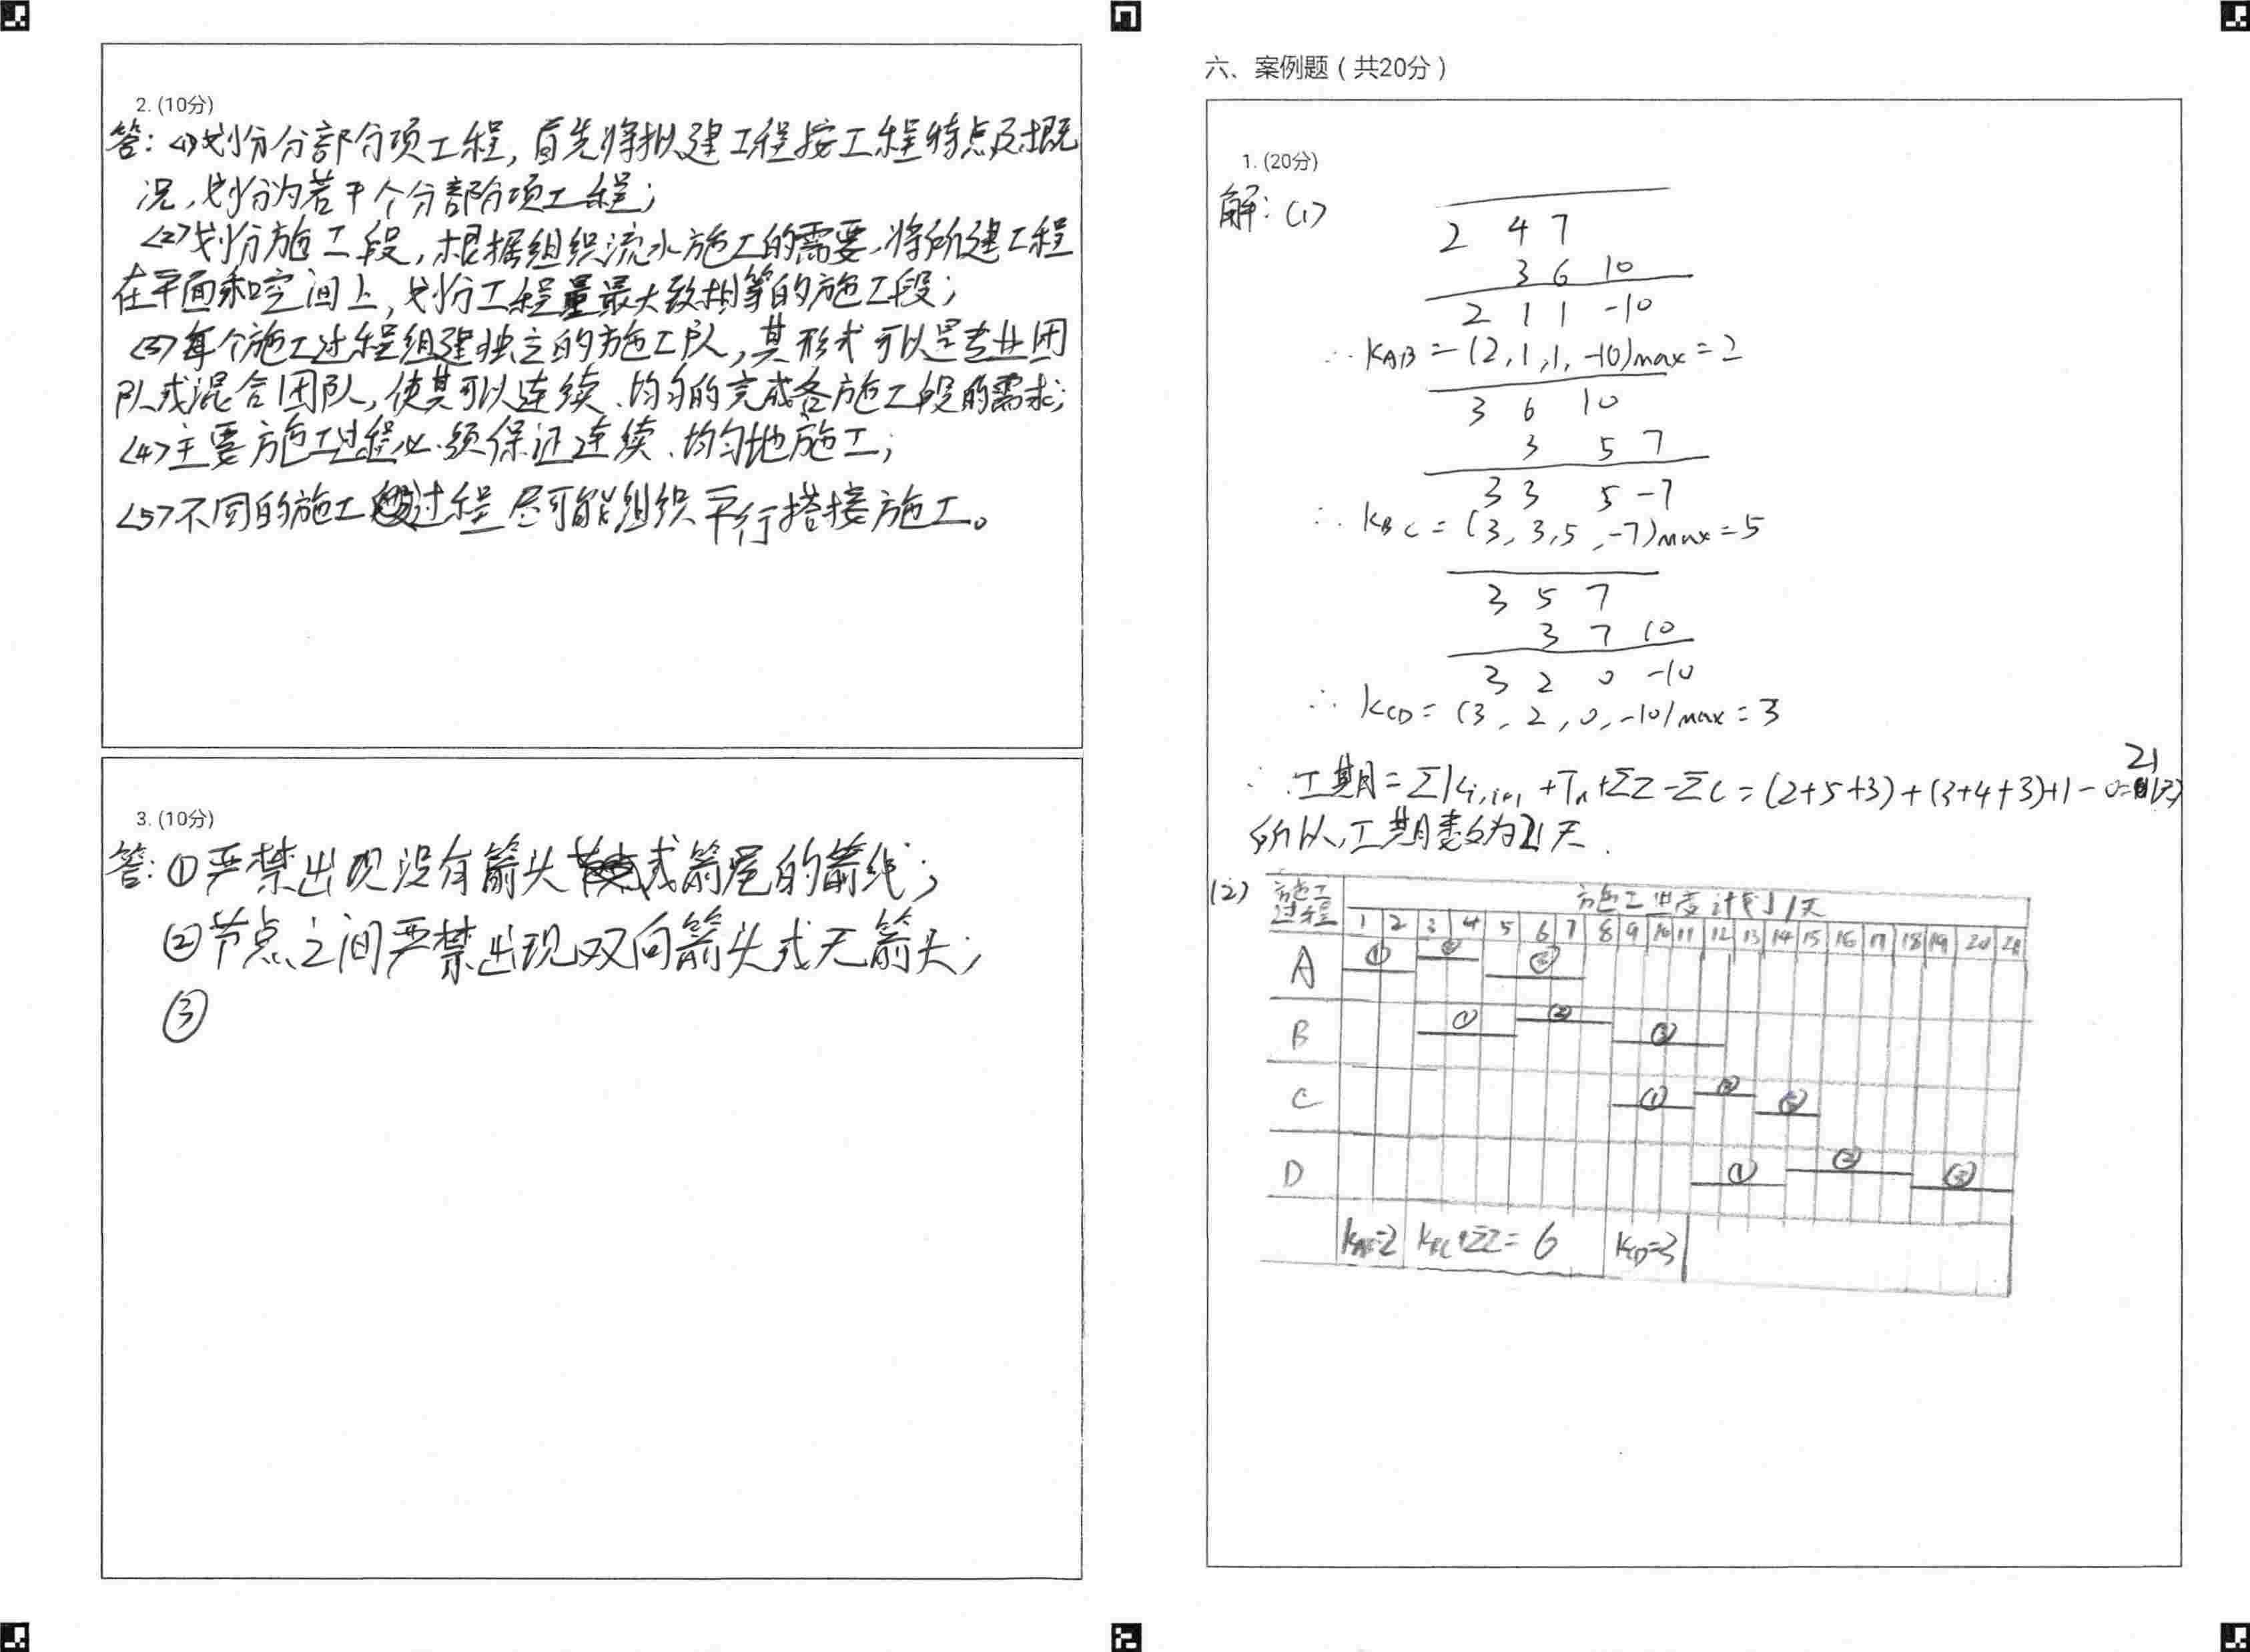 2. (10分)
答:<1>划分分部分项工程,首先将拟建工程按工程特点及概
况,划分为若干个分部分项工程;
<2>划分施工段,根据组织流水施工的需要,将所建工程
在平面和空间上,划分工程量最大致相等的施工段;
<3>每个施工过程组建独立的施工队,其形式可以是专业团
队或混合团队,使其可以连续、均匀的完成各施工段的需求;
<4>主要施工过程必须保证连续、均匀地施工;
<5>不同的施工过程尽可能组织平行搭接施工。
3. (10分)
答:①严禁出现没有箭头或箭尾的箭线;
②节点之间严禁出现双向箭头或无箭头;
③
六、案例题(共20分)
1. (20分)
解:(1)
2 4 7
3 6 10
2 1 1 -10
∴ KAB=(2,1,1,-10)max=2
3 6 10
3 5 7
3 3 5 -7
∴ KBC=(3,3,5,-7)max=5
3 5 7
3 7 10
3 2 0 -10
∴ KCD=(3,2,0,-10)max=3
∴ 工期=ΣKi,i+1+Tn+ΣZ-ΣC=(2+5+3)+(3+4+3)+1-0=21(天)
所以,工期为21天.
(2) 施工过程 施工进度计划/天
1 2 3 4 5 6 7 8 9 10 11 12 13 14 15 16 17 18 19 20 21
A ① ② ③
B ① ② ③
C ① ② ③
D ① ② ③
KAB=2 KBC+ΣZ=6 KCD=3